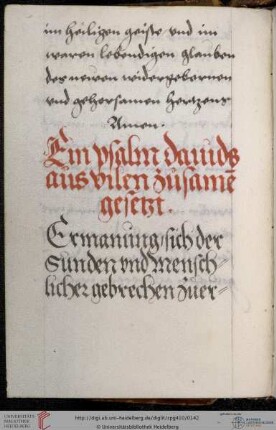 im heiligen geiste vnd im
waren lebendigen glauben
des newen widergebornen
vnd gehorsamen hertzens
Amen.
Ein psalm dauids
aus vilen zusamē
gesetzt.
Ermanung/sich der
Sunden vnd Mensch
licher gebrechen zuer=
UNIVERSITÄTS-
BIBLIOTHEK
HEIDELBERG
http://digi.ub.uni-heidelberg.de/diglit/cpg490/0142
© Universitätsbibliothek Heidelberg